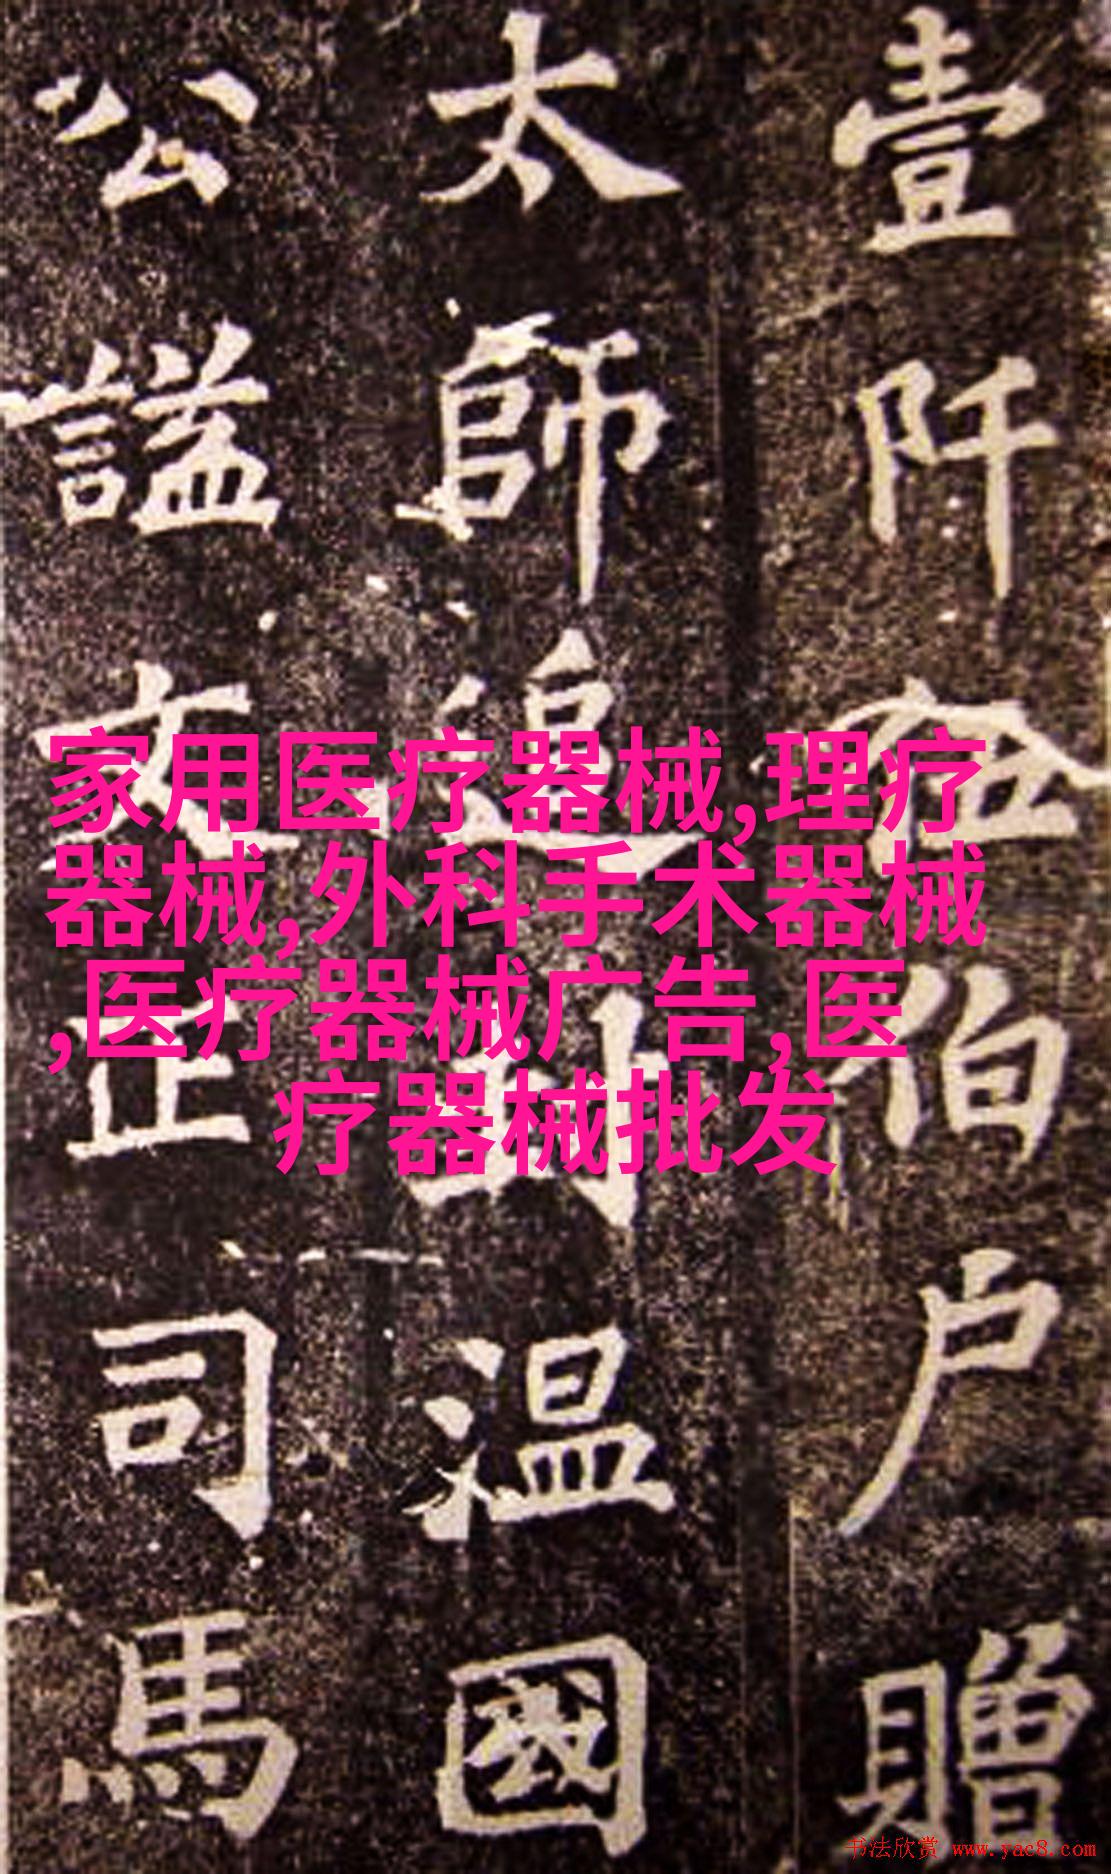 壹阡伯户贈
太師追封温國
公謚文正司馬
家用医疗器械,理疗
器械,外科手术器械
,医疗器械广告,医
疗器械批发
书法欣赏 www.yac8.com